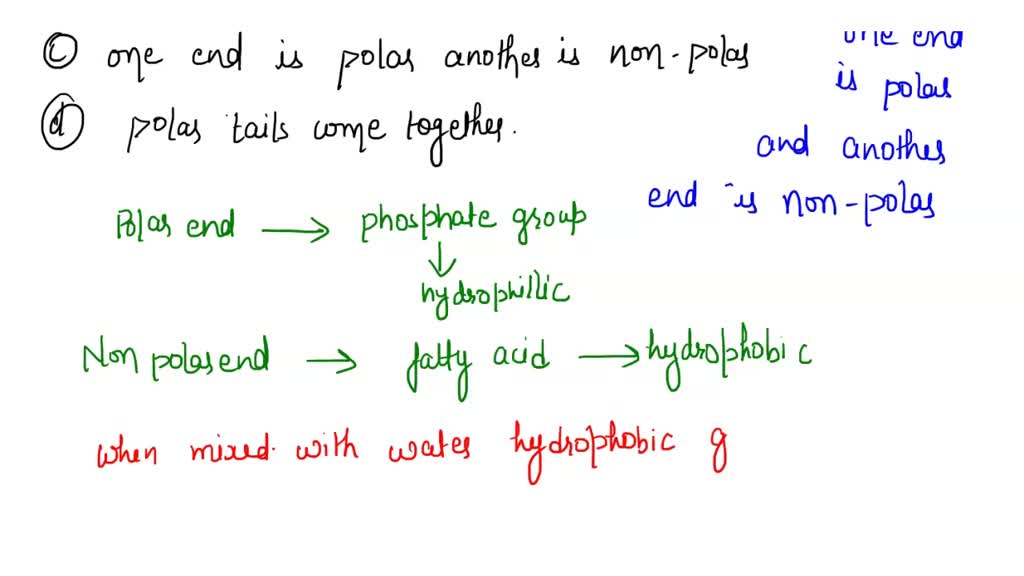 (c) one end is polar another is non-polar
(d) polar tails come together.
one end
is polar
and another
end is non-polar
Polar end → phosphate group
↓
hydrophillic
Non polar end → fatty acid → hydrophobic
when mixed with water hydrophobic g